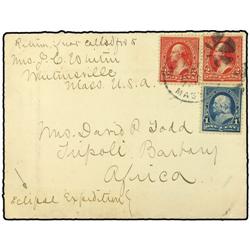 Return if not called for to
Mrs. J. C. Whitin
Whitinsville
Mass. U.S.A.
MAS
1
Mrs. David P. Todd
Tripoli Barbary
Africa
Eclipse Expedition